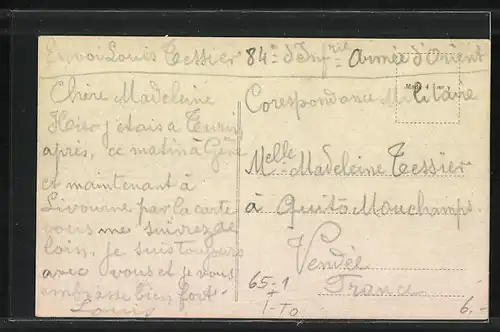 Envoi Louis Tessier 84e d'Infrie Armée d'Orient
Chère Madeleine
Hier j etais a Turin
après, ce matin à Gêne
et maintenant à
Livourne par la carte
vous me suivrez de
loin, je suis toujours
avec vous et je vous
embrasse bien fort
Louis
Corespondance Militaire
Melle Madeleine Tessier
à Quito Mouchamps
Vendée
France
65-1
6.-